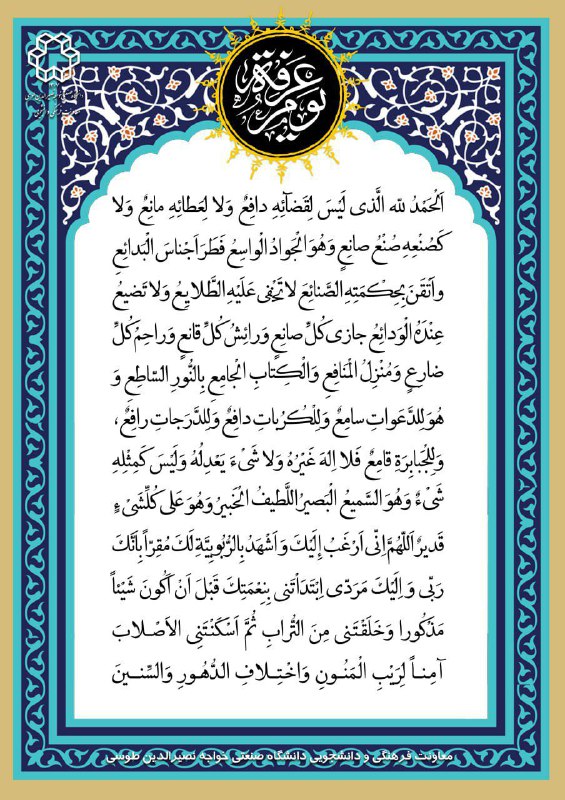 یوم عرفة
اَلْحَمْدُ لله الَّذی لَیْسَ لِقَضآئِهِ دافِعٌ وَلا لِعَطائِهِ مانِعٌ وَلا
کَصُنْعِهِ صُنْعُ صانِعٍ وَهُوَ الْجَوادُ الْواسِعُ فَطَرَ اَجْناسَ الْبَدائِعِ
واَتْقَنَ بِحِکْمَتِهِ الصَّنائِعَ لا تَخْفی عَلَیْهِ الطَّلایِعُ وَلا تَضیعُ
عِنْدَهُ الْوَدائِعُ جازی کُلِّ صانِعٍ وَرائِشُ کُلِّ قانِعٍ وَراحِمُ کُلِّ
ضارِعٍ وَمُنْزِلُ الْمَنافِعِ وَالْکِتابِ الْجامِعِ بِالنُّورِ السّاطِعِ وَ
هُوَ لِلدَّعَواتِ سامِعٌ وَلِلْکُرُباتِ دافِعٌ وَلِلدَّرَجاتِ رافِعٌ،
وَلِلْجَبابِرَةِ قامِعٌ فَلا اِلهَ غَیْرُهُ وَلا شَیْءَ یَعْدِلُهُ وَلَیْسَ کَمِثْلِهِ
شَیْءٌ وَهُوَ السَّمیعُ الْبَصیرُ اللَّطیفُ الْخَبیرُ وَهُوَ عَلی کُلِّشَیْءٍ
قَدیرٌ اَللّهُمَّ اِنّی اَرْغَبُ إِلَیْكَ وَاَشْهَدُ بِالرُّبُوبِیَّةِ لَكَ مُقِرّاً بِاَنَّكَ
رَبّی وَ اِلَیْكَ مَرَدّی اِبْتَدَاْتَنی بِنِعْمَتِكَ قَبْلَ اَنْ اَکُونَ شَیْئاً
مَذْکُورا وَخَلَقْتَنی مِنَ التُّرابِ ثُمَّ اَسْکَنْتَنِی الاَصْلابَ
آمِناً لِرَیْبِ الْمَنُونِ وَاخْتِلافِ الدُّهُورِ وَالسِّنینَ
معاونت فرهنگی و دانشجویی دانشگاه صنعتی خواجه نصیرالدین طوسی